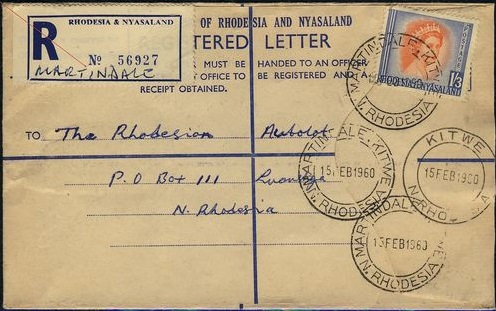 RHODESIA & NYASALAND
R No 56927
MARTINDALE
OF RHODESIA AND NYASALAND
TERED LETTER
MUST BE HANDED TO AN OFFICER
OFFICE TO BE REGISTERED AND A
RECEIPT OBTAINED.
POSTAGE
RHODESIA & NYASALAND
1/6
MARTINDALE-KITWE
N. RHODESIA
TO The Rhodesian
P.O Box 111
N. Rhodesia
MARTINDALE-KITWE
15 FEB 1960
N. RHODESIA
KITWE
15 FEB 1960
N. RHO IA
MARTINDAL WE
15 FEB 1960
N. RHODESIA